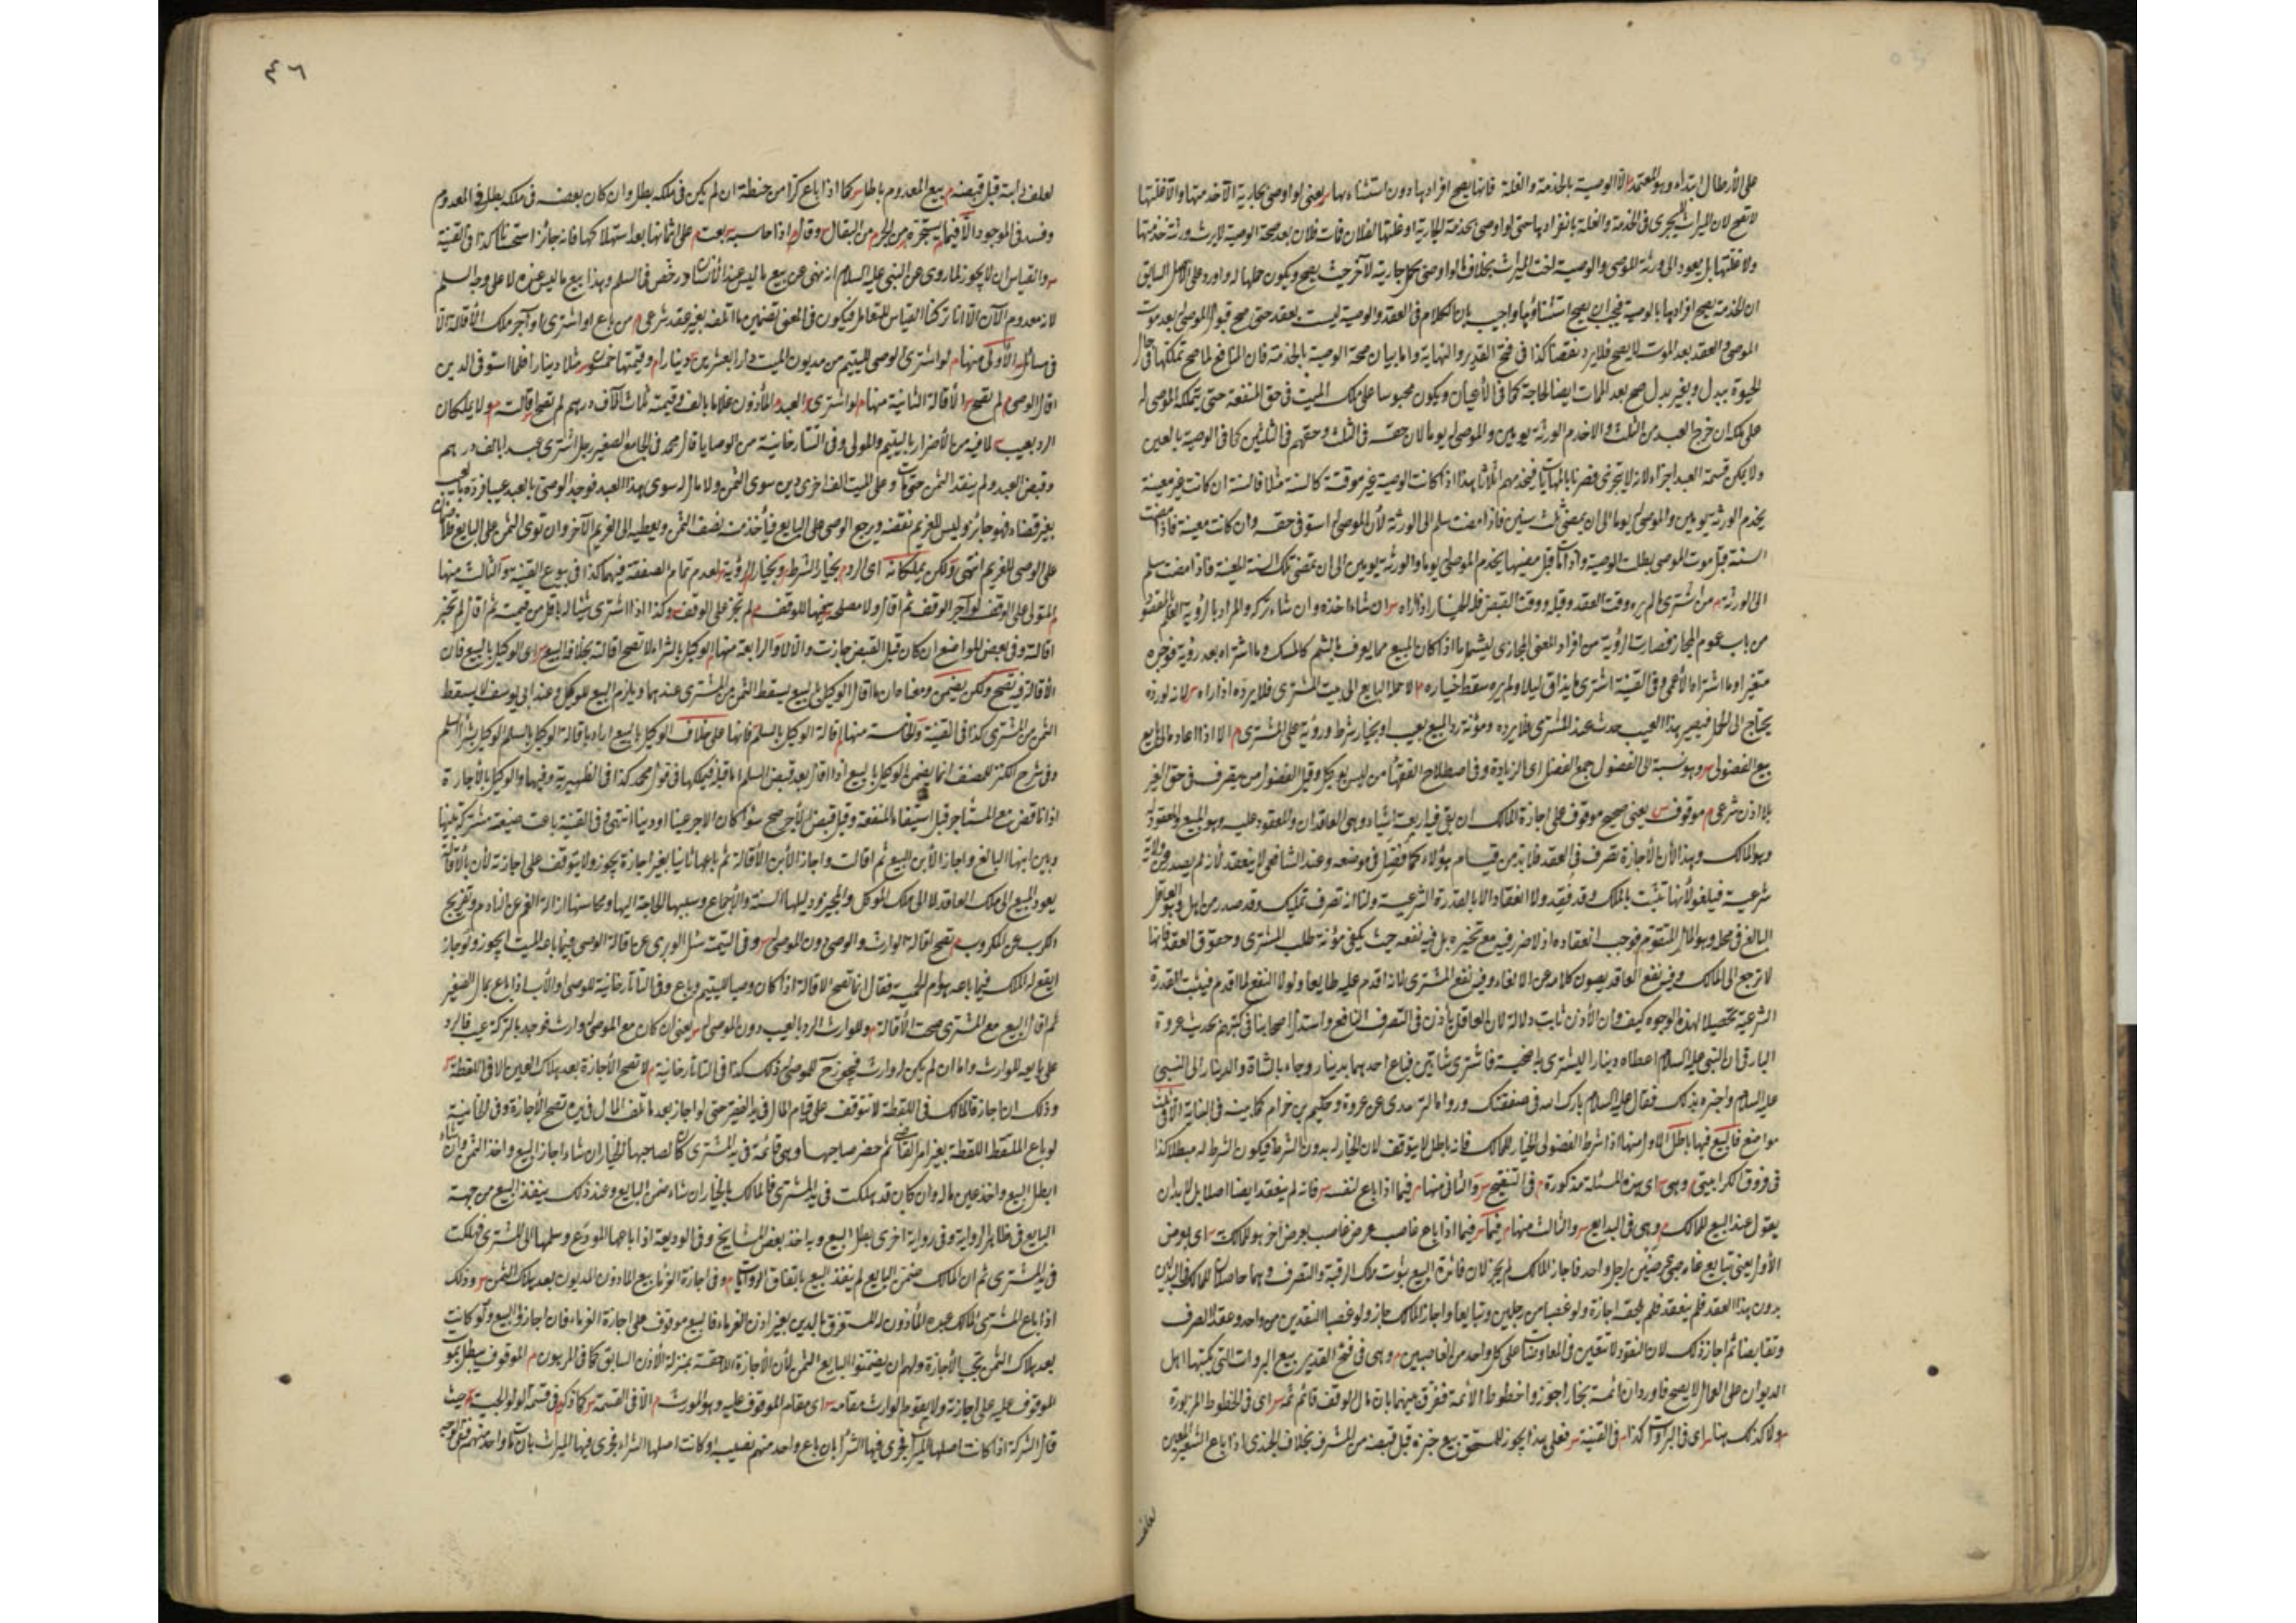 على الأرطال ابتداء وهو المعتمد م الا الوصية بالخدمة والغلة فانها يصح افرادها دون استثناءها س يعنى لو اوصى بجارية لآخر
لا تصح لان الميراث يجرى فى الخدمة والغلة بانفرادها حتى لو اوصى بخدمة الجارية او غلتها لفلان فمات فلان بعد صحة الوصية لا يرث ورثته خدمتها
ولا غلتها بل يعود الى ورثة الموصى والوصية اخت الميراث بخلاف ما لو اوصى بحمل جارية لآخر حيث يصح ويكون حملها له واورد على الاصل السابق
ان الخدمة يصح افرادها بالوصية فيجب ان يصح استثناؤها واجيب بان الكلام فى العقد والوصية ليست بعقد حتى صح قبول الموصى له بعد موت
الموصى والعقد بعد الموت لا يصح فلا يرد نقضا كذا فى فتح القدير والنهاية واما بيان صحة الوصية بالخدمة فان المنافع لما صح تمليكها فى حال
الحيوة ببدل وبغير بدل صح بعد الممات ايضا للحاجة كما فى الأعيان ويكون محبوسا على ملك الميت فى حق المنفعة حتى يتملكه الموصى له
على ملكه ان خرج العبد من الثلث والا خدم الورثة يومين والموصى له يوما لان حقه فى الثلث وحقهم فى الثلثين كما فى الوصية بالعين
ولا يمكن قسمة العبد اجزاء لانه لا يتجزى فصرنا بالمهايات فيخدمهم اثلاثا هذا اذا كانت الوصية غير موقتة كالسنة مثلا فالسنة ان كانت غير معينة
يخدم الورثة يومين والموصى له يوما الى ان يمضى ثلث سنين فاذا مضت سلم الى الورثة لأن الموصى له استوفى حقه وان كانت معينة فاذا مضت
السنة قبل موت الموصى بطلت الوصية واذا مات قبل مضيها يخدم الموصى له يوما والورثة يومين الى ان تمضى تلك السنة المعينة فاذا مضت سلم
الى الورثة م من اشترى ما لم يره وقت العقد وقبله ووقت القبض فله الخيار اذا رآه س ان شاء اخذه وان شاء تركه والمراد بالرؤية العلم بالمقصود
من باب عموم المجاز فصارت الرؤية من افراد المعنى المجازى ليشمل ما اذا كان المبيع مما يعرف بالشم كالمسك وما اشتراه بعد رؤية فوجده
متغيرا وما اشتراه الأعمى وفى القنية اشترى ما يذاق ليلا ولم يره سقط خياره م الا اذا حمله البايع الى بيت المشترى فلا يرده اذا رآه س لانه لو رده
يحتاج الى الحمل فيصير هذا العيب حدث عند المشترى فلا يرده ومؤنة رد المبيع بعيب او بخيار شرط ورؤية على المشترى م الا اذا اعاده الى البايع
بيع الفضولى س وهو نسبة الى الفضول جمع الفضل اى الزيادة وفى اصطلاح الفقهاء من ليس بوكيل وقيل الفضولى من يتصرف فى حق الغير
بلا اذن شرعى م موقوف س يعنى صحيح موقوف على اجازة المالك ان بقى فيه اربعة اشياء وهى العاقدان والمعقود عليه وهو المبيع والمعقود له
وهو المالك وهذا لأن الأجازة تصرف فى العقد فلا بد من قيام هؤلاء كما فصل فى موضعه وعند الشافعى لا ينعقد لأنه لم يصدر عن ولاية
شرعية فيلغو لأنها تثبت بالملك وقد فقد ولا انعقاد الا بالقدرة الشرعية ولنا انه تصرف تمليك وقد صدر من اهله وهو العاقل
البالغ فى محله وهو المال المتقوم فوجب انعقاده اذ لا ضرر فيه مع تخييره بل فيه نفعه حيث يكفى مؤنة طلب المشترى وحقوق العقد فانها
لا ترجع الى المالك وفيه نفع العاقد بصون كلامه عن الالغاء وفيه نفع المشترى لانه اقدم عليه طايعا ولولا النفع لما اقدم فيثبت القدرة
الشرعية تحصيلا لهذه الوجوه كيف وان الأذن ثابت دلالة لان العاقل يأذن فى التصرف النافع واستدل اصحابنا فى كتبهم بحديث عروة
البارقى ان النبى عليه السلام اعطاه دينارا ليشترى به اضحية فاشترى شاتين فباع احدهما بدينار وجاء بالشاة والدينار الى النبى
عليه السلام واخبره بذلك فقال عليه السلام بارك الله فى صفقتك ورواه الترمذى عن عروة وحكيم بن حزام كما بينه فى البناية الا فى ثلث
مواضع فالبيع فيها باطل الاول منها اذا شرط الفضولى الخيار للمالك فانه باطل لا يتوقف لان الخيار له بدون الشرط فيكون الشرط له مبطلا كذا
فى فروق الكرابيسى وهى س اى هذه المسئلة مذكورة م فى التنقيح س والثانى منها م فيما اذا باع لنفسه س فانه لم ينعقد ايضا اصلا بل لا بد ان
يقول عند البيع للمالك م وهى فى البدايع س والثالث منها م فيما س فيما اذا باع غاصب عرض غاصب بعرض آخر هو للمالك س اى بعرض
الأول يعنى تبايع غاصبى عرضين لرجل واحد فاجاز المالك لم يجز لان فائدة البيع ثبوت ملك الرقبة والتصرف وهما حاصلان للمالك فى البدلين
بدون هذا العقد فلم ينعقد فلم يلحقه اجازة ولو غصبا من رجلين وتبايعا واجاز المالك جاز ولو غصبا النقدين من واحد وعقدا الصرف
وتقابضا ثم اجاز ذلك لان النقود لا تتعين فى المعاوضات على كل واحد من الغاصبين م وهى فى فتح القدير بيع البروات التى يكتبها اهل
الديوان على العمال لا يصح فاورد ان ائمة بخارا جوزوا خطوط الأئمة ففرق بينهما بان مال الوقف قائم ثمه س اى فى الخطوط المزبورة
م ولا كذلك هنا س اى فى البراوات كذا م فى القنية س فعلى هذا يجوز للمستحق بيع خبزه قبل قبضه من المشرف بخلاف الجندى اذا باع الشعير المعين
لعلف
٤٦
لعلف دابته قبل قبضه م بيع المعدوم باطل س كما اذا باع كرا من حنطة ان لم يكن فى ملكه بطل وان كان بعضه فى ملكه بطل فى المعدوم
وفسد فى الموجود الا فيما يستجره من الخبز م من البقال س وقال م اذا حاسبه بعت م على اثمانها بعد استهلاكها فانه جائز استحسانا كذا فى القنية
س والقياس ان لا يجوز لما روى عن النبى عليه السلام انه نهى عن بيع ما ليس عند الأنسان ورخص فى السلم وهذا بيع ما ليس عنده لا على وجه السلم
لانه معدوم الآن الا انا تركنا القياس للتعامل فيكون فى المعنى تضمين ما اتلفه بغير عقد شرعى م من باع او اشترى او آجر ملك الأقالة الا
فى مسائل س الأولى منها م لو اشترى الوصى لليتيم من مديون الميت دارا بعشرين دينارا م وقيمتها خمسون س مثلا دينارا فلما استوفى الدين
اقال الوصى م لم تصح س الأقالة الثانية منها م لو اشترى س العبد م المأذون غلاما بالف وقيمته ثلاث آلاف درهم لم تصح اقالته س ولا يملكان
الرد بعيب س لما فيه من الأضرار باليتيم والمولى وفى التتارخانية من الوصايا قال محمد فى الجامع الصغير رجل اشترى عبدا بالف درهم
وقبض العبد ولم ينقد الثمن حتى مات وعلى الميت الف اخرى دين سوى الثمن ولا مال له سوى هذا العبد فوجد الوصى بالعبد عيبا فرده بالعيب
بغير قضاء فهو جائز وليس للغريم نقضه ويرجع الوصى على البايع فيأخذ منه نصف الثمن ويعطيه الى الغريم الآخر وان توى الثمن على البايع فلا ضمان
على الوصى للغريم انتهى ولكن يملكانه اى الرد م بخيار الشرط وبخيار الرؤية س لعدم تمام الصفقة فيهما كذا فى بيوع القنية س والثالث منها
م المتولى على الوقف لو آجر الوقف ثم اقال ولا مصلحة فيها للوقف م لم تجز على الوقف س وكذا اذا اشترى شيئا له باقل من قيمته ثم اقال لم تجز
اقالته وفى بعض المواضع ان كان قبل القبض جازت والا لا والرابعة منها م الوكيل بالشراء لا تصح اقالته بخلافه بالبيع س اى الوكيل بالبيع فان
الأقالة فيه تصح ولكن يضمن ومعنا ضمان ما اقال الوكيل بالبيع يسقط الثمن من المشترى عندهما ويلزم البيع للوكيل وعند ابى يوسف لا يسقط
الثمن من المشترى كذا فى القنية والخامسة منها م اقالة الوكيل بالسلم فانها على خلاف الوكيل بالبيع اراد باقالة الوكيل بالسلم الوكيل بشراء السلم
وفى شرح الكنز للمصنف انما يضمن الوكيل بالبيع اذا اقال بعد قبض السلم اما قبله فيملكها فى قول محمد كذا فى الظهيرية وفيها والوكيل بالأجارة
اذا ناقض مع المستأجر قبل استيفاء المنفعة وقبل قبض الأجر صح سواء كان الاجر عينا او دينا انتهى وفى القنية باعت ضيعة مشتركة بينها
وبين ابنها البالغ واجاز الأبن البيع ثم اقالت واجاز الأبن الأقالة ثم باعها ثانيا بغير اجازة يجوز ولا يتوقف على اجازته لأن بالأقالة
يعود المبيع الى ملك العاقد لا الى ملك الموكل والمجيز ودليلها السنة والإجماع وسببها الحاجة اليها ومحاسنها ازالة الغم عن النادم وتفريج
الكرب عن المكروب م تصح اقالة الوارث والوصى دون الموصى له س وفى اليتيمة سئل الوبرى عن اقالة الوصى فيما باعه الميت ايجوز ولو جاز
ايقع له الملك فيما باعه هو ام الحمية فقال انما تصح الاقالة اذا كان وصيا لليتيم وباع وفى التاتارخانية للوصى والأب اذا باع مال الصغير
ثم اقال البيع مع المشترى صحت الأقالة م وللوارث الرد بالعيب دون الموصى له س يعنى ان كان مع الموصى له وارث فوجد بالتركة عيب فالرد
على بايعه للوارث واما ان لم يكن له وارث فيجوز ح للموصى له ذلك كذا فى التاتارخانية م لا تصح الأجازة بعد هلاك العين الا فى اللقطة س
وذلك ان اجازة المالك فى اللقطة لا تتوقف على قيام المال فى يد الفقير حتى لو اجاز بعد ما تلف المال فى يده تصح الأجازة وفى الخانية
لو باع الملتقط اللقطة بغير امر القاضى ثم حضر صاحبها وهى قائمة فى يد المشترى كان لصاحبها الخيار ان شاء اجاز البيع واخذ الثمن وان شاء
ابطل البيع واخذ عين ماله وان كان قد هلكت فى يد المشترى فالمالك بالخيار ان شاء ضمن البايع وعند ذلك ينفذ البيع من جهة
البايع فى ظاهر الرواية وفى رواية اخرى بطل البيع وبه اخذ بعض المشايخ وفى الوديعة اذا باعها المودع وسلمها الى المشترى فهلكت
فى يد المشترى ثم ان المالك ضمن البايع لم ينفذ البيع باتفاق الروايات م وفى اجازة الغرماء بيع المأذون المديون بعد هلاك الثمن س وذلك
اذا باع المشترى المالك عبده المأذون له المستغرق بالدين بغير اذن الغرماء فالبيع موقوف على اجازة الغرماء فان اجازوا البيع ولو كانت
بعد هلاك الثمن تجب الأجازة ولهم ان يضمنوا البايع الثمن لأن الأجازة اللاحقة بمنزلة الأذن السابق كما فى المرهون م الموقوف يبطل بموت
الموقوف عليه على اجازته ولا يقوم الوارث مقامه س اى مقام الموقوف عليه وهو المورث م الا فى القسمة س كما ذكره م فى قسمة الولوالجية س حيث
قال الشركة اذا كانت اصلها الميراث فجرى فيها الشراء بان باع واحد منهم نصيبه او كانت اصلها الشراء فجرى فيها الميراث بان مات واحد منهم